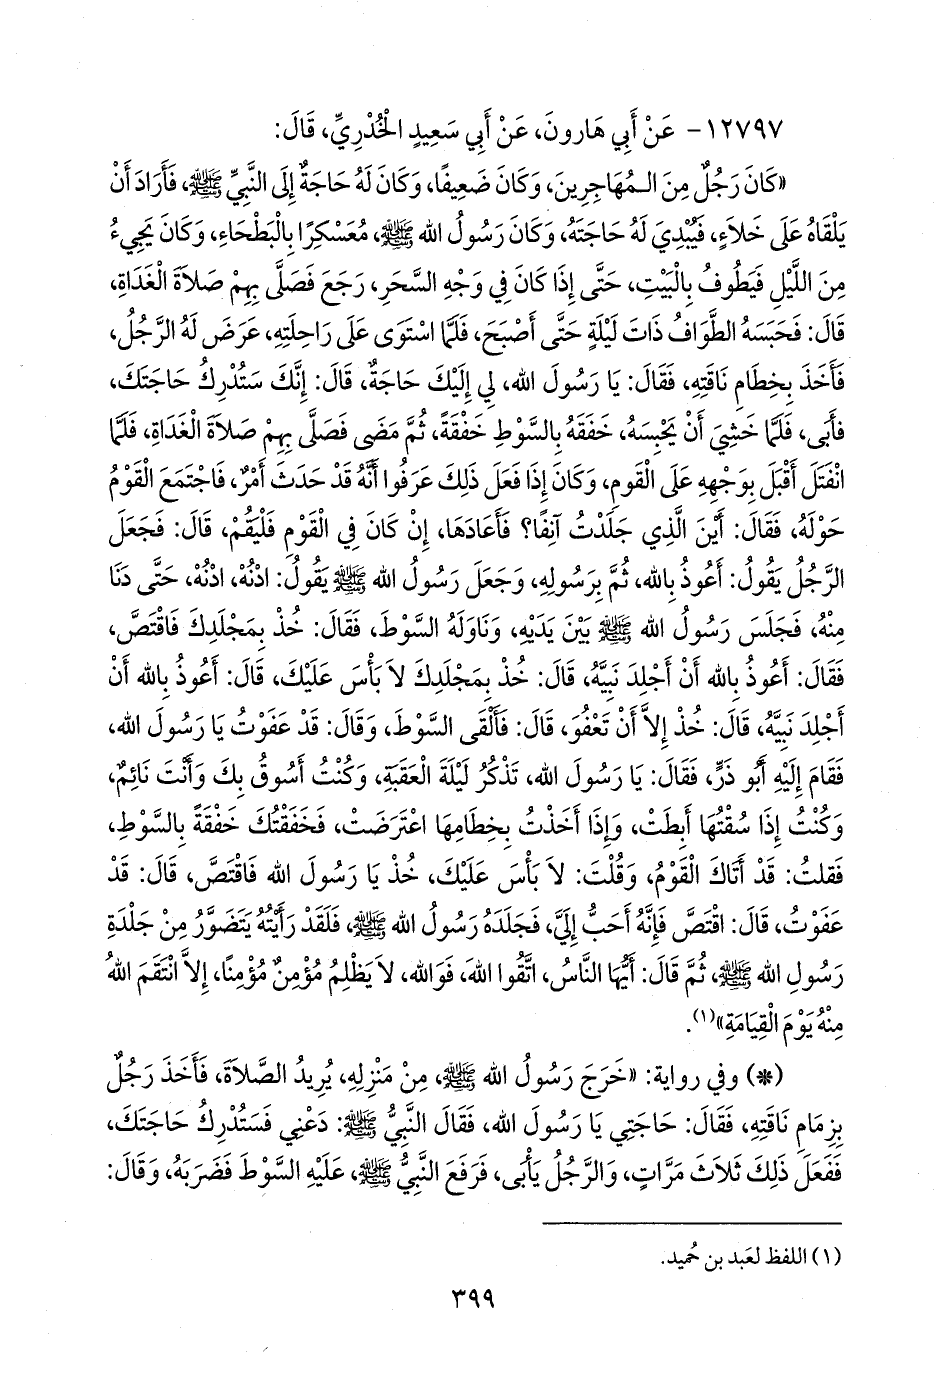 ١٢٧٩٧- عَنْ أَبِي هَارونَ، عَنْ أَبِي سَعِيدٍ الْخُدْرِيِّ، قَالَ:
«كَانَ رَجُلٌ مِنَ الـمُهَاجِرِينَ، وَكَانَ ضَعِيفًا، وَكَانَ لَهُ حَاجَةٌ إِلَى النَّبِيِّ ﷺ، فَأَرَادَ أَنْ
يَلْقَاهُ عَلَى خَلاَءٍ، فَيُبْدِيَ لَهُ حَاجَتَهُ، وَكَانَ رَسُولُ الله ﷺ، مُعَسْكِرًا بِالْبَطْحَاءِ، وَكَانَ يَجِيءُ
مِنَ اللَّيْلِ فَيَطُوفُ بِالْبَيْتِ، حَتَّى إِذَا كَانَ فِي وَجْهِ السَّحَرِ، رَجَعَ فَصَلَّى بِهِمْ صَلاَةَ الْغَدَاةِ،
قَالَ: فَحَبَسَهُ الطَّوَافُ ذَاتَ لَيْلَةٍ حَتَّى أَصْبَحَ، فَلَمَّا اسْتَوَى عَلَى رَاحِلَتِهِ، عَرَضَ لَهُ الرَّجُلُ،
فَأَخَذَ بِخِطَامِ نَاقَتِهِ، فَقَالَ: يَا رَسُولَ الله، لِي إِلَيْكَ حَاجَةٌ، قَالَ: إِنَّكَ سَتُدْرِكُ حَاجَتَكَ،
فأَبَى، فَلَمَّا خَشِيَ أَنْ يَحْبِسَهُ، خَفَقَهُ بِالسَّوْطِ خَفْقَةً، ثُمَّ مَضَى فَصَلَّى بِهِمْ صَلاَةَ الْغَدَاةِ، فَلَمَّا
انْفَتَلَ أَقْبَلَ بِوَجْهِهِ عَلَى الْقَومِ، وَكَانَ إِذَا فَعَلَ ذَلِكَ عَرَفُوا أَنَّهُ قَدْ حَدَثَ أَمْرٌ، فَاجْتَمَعَ الْقَوْمُ
حَوْلَهُ، فَقَالَ: أَيْنَ الَّذِي جَلَدْتُ آنِفًا؟ فَأَعَادَهَا، إِنْ كَانَ فِي الْقَوْمِ فَلْيَقُمْ، قَالَ: فَجَعَلَ
الرَّجُلُ يَقُولُ: أَعُوذُ بِالله، ثُمَّ بِرَسُولِهِ، وَجَعَلَ رَسُولُ الله ﷺ يَقُولُ: ادْنُهْ، ادْنُهْ، حَتَّى دَنَا
مِنْهُ، فَجَلَسَ رَسُولُ الله ﷺ بَيْنَ يَدَيْهِ، وَنَاوَلَهُ السَّوْطَ، فَقَالَ: خُذْ بِمَجْلَدِكَ فَاقْتَصَّ،
فَقَالَ: أَعُوذُ بِالله أَنْ أَجْلِدَ نَبِيَّهُ، قَالَ: خُذْ بِمَجْلَدِكَ لاَ بَأْسَ عَلَيْكَ، قَالَ: أَعُوذُ بِالله أَنْ
أَجْلِدَ نَبِيَّهُ، قَالَ: خُذْ إِلاَّ أَنْ تَعْفُوَ، قَالَ: فَأَلْقَى السَّوْطَ، وَقَالَ: قَدْ عَفَوْتُ يَا رَسُولَ الله،
فَقَامَ إِلَيْهِ أَبُو ذَرٍّ، فَقَالَ: يَا رَسُولَ الله، تَذْكُرُ لَيْلَةَ الْعَقَبَةِ، وَكُنْتُ أَسُوقُ بِكَ وَأَنْتَ نَائِمٌ،
وَكُنْتُ إِذَا سُقْتُهَا أَبطَتْ، وَإِذَا أَخَذْتُ بِخِطَامِهَا اعْتَرَضَتْ، فَخَفَقْتُكَ خَفْقَةً بِالسَّوْطِ،
فَقلتُ: قَدْ أَتَاكَ الْقَوْمُ، وَقُلْتَ: لاَ بَأْسَ عَلَيْكَ، خُذْ يَا رَسُولَ الله فَاقْتَصَّ، قَالَ: قَدْ
عَفَوْتُ، قَالَ: اقْتَصَّ فَإِنَّهُ أَحَبُّ إِلَيَّ، فَجَلَدَهُ رَسُولُ الله ﷺ، فَلَقَدْ رَأَيْتُهُ يَتَضَوَّرُ مِنْ جَلْدَةِ
رَسُولِ الله ﷺ، ثُمَّ قَالَ: أَيُّهَا النَّاسُ، اتَّقُوا اللهَ، فَوَالله، لاَ يَظْلِمُ مُؤْمِنٌ مُؤْمِنًا، إِلاَّ انْتَقَمَ اللهُ
مِنْهُ يَوْمَ الْقِيَامَةِ»(١).
(*) وفي رواية: «خَرَجَ رَسُولُ الله ﷺ، مِنْ مَنْزِلِهِ، يُرِيدُ الصَّلاَةَ، فَأَخَذَ رَجُلٌ
بِزِمَامِ نَاقَتِهِ، فَقَالَ: حَاجَتِي يَا رَسُولَ الله، فَقَالَ النَّبِيُّ ﷺ: دَعْنِي فَسَتُدْرِكُ حَاجَتَكَ،
فَفَعَلَ ذَلِكَ ثَلاَثَ مَرَّاتٍ، وَالرَّجُلُ يَأْبَى، فَرَفَعَ النَّبِيُّ ﷺ، عَلَيْهِ السَّوْطَ فَضَرَبَهُ، وَقَالَ:
(١) اللفظ لعَبد بن حُميد.
٣٩٩